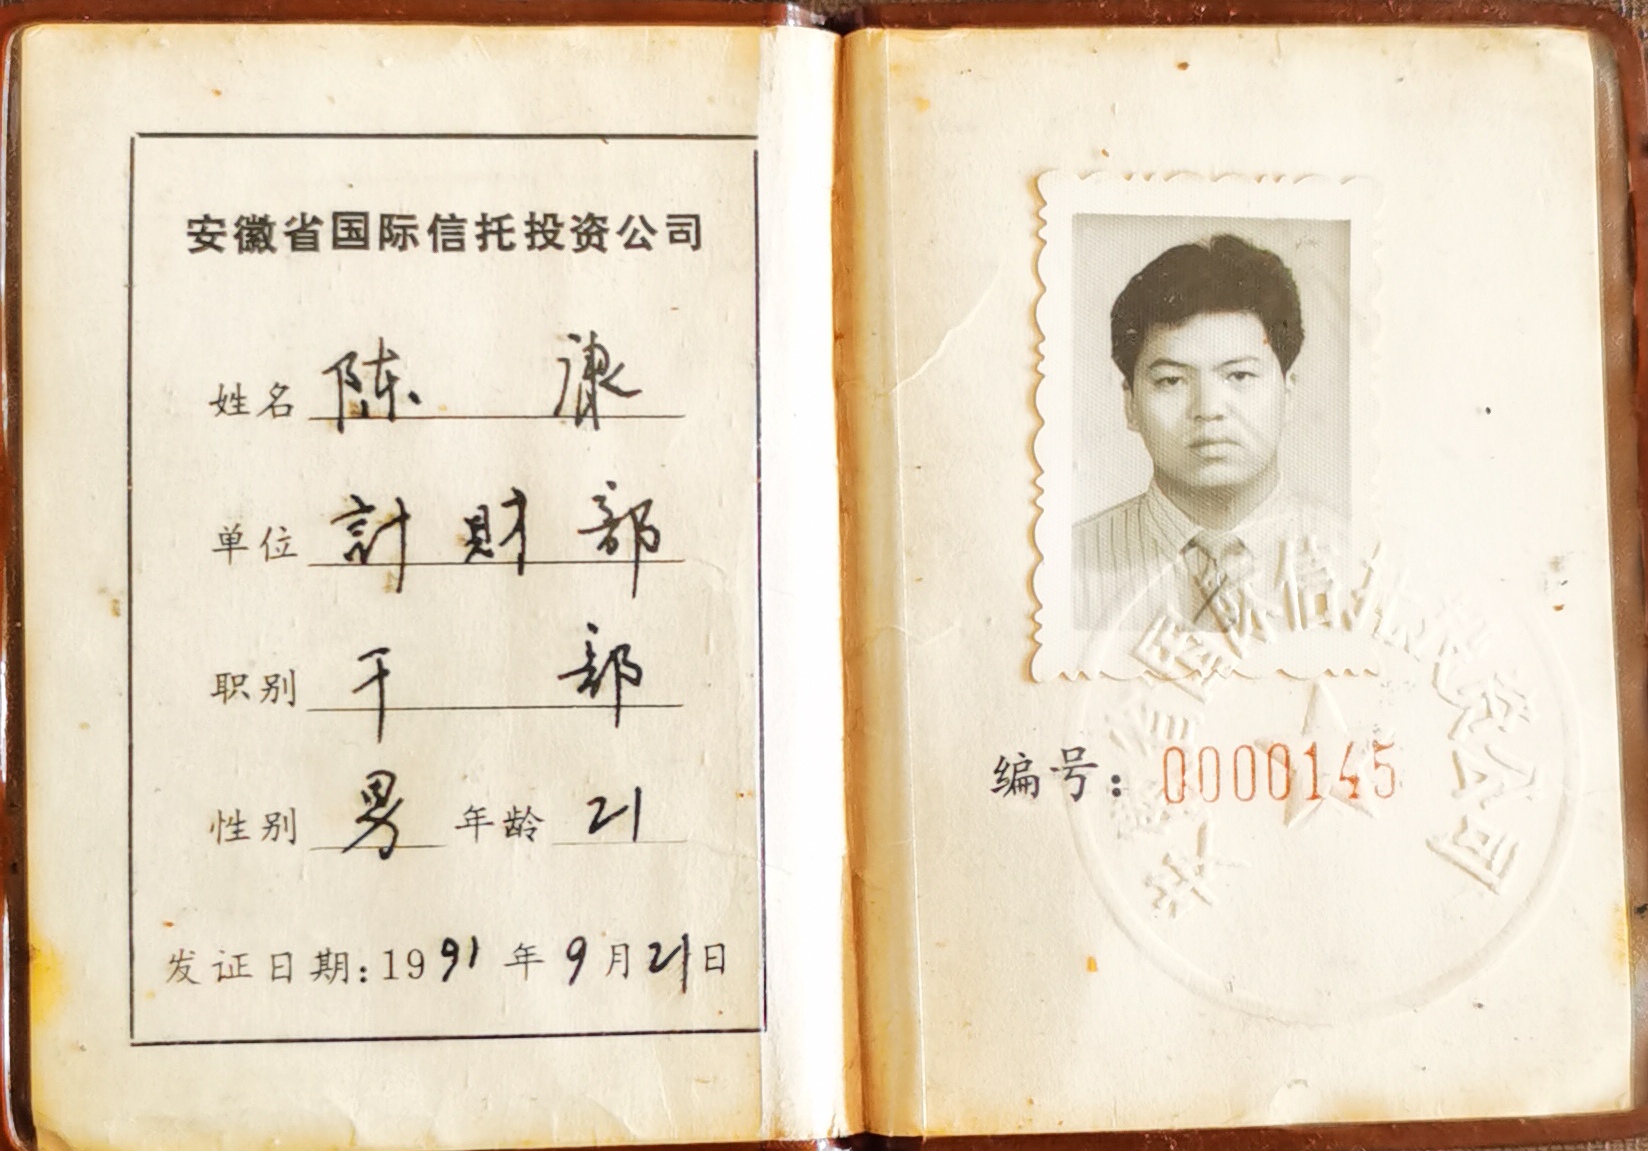 安徽省国际信托投资公司
姓名 陈
单位 計財部
职别 干部
性别 男 年龄 21
发证日期:1991年9月21日
安徽省国际信托投资公司
编号:0000145